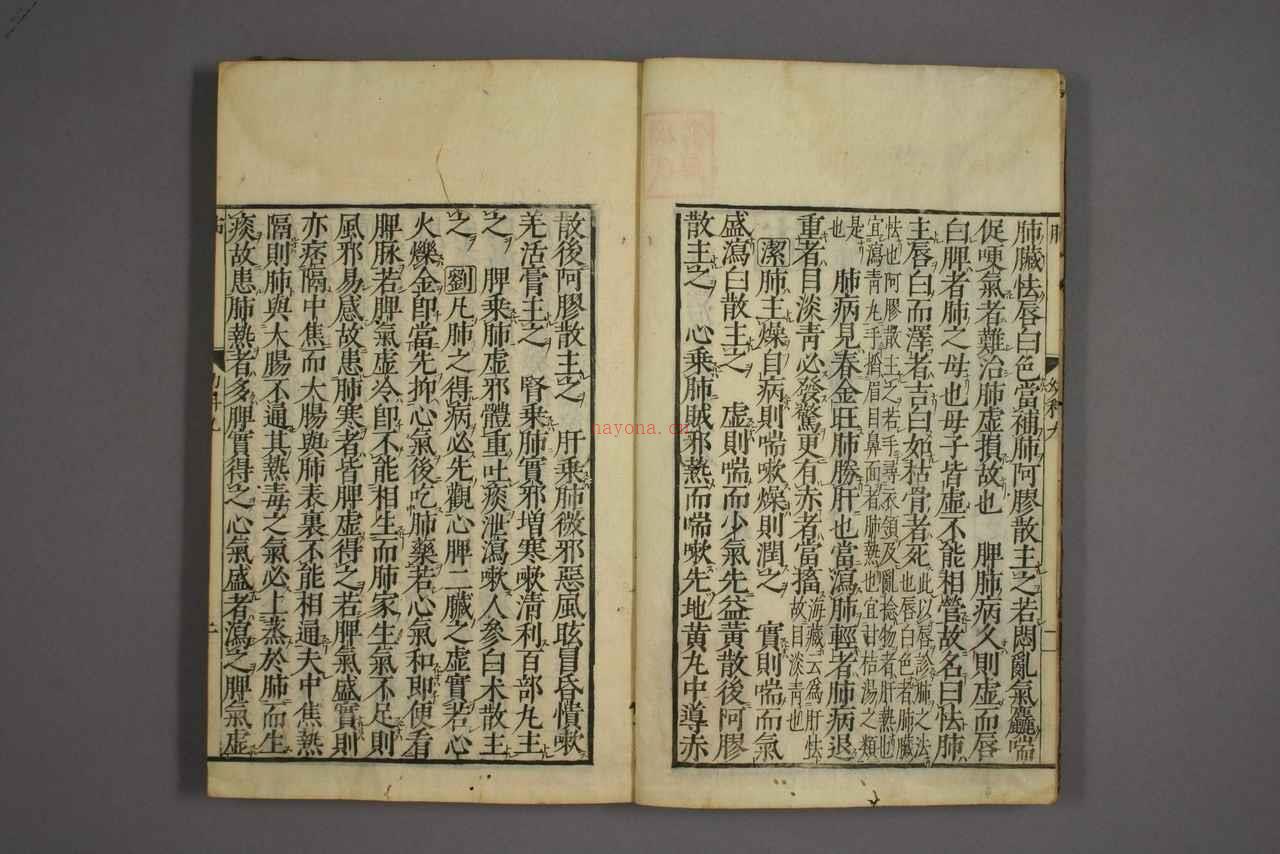 肺臟怯唇白色當補肺阿膠散主之若悶亂氣麤喘
促哽氣者難治肺虚損故也　脾肺病久則虚而唇
白脾者肺之母也母子皆虚不能相營故名曰怯肺
主唇白而澤者吉白如枯骨者死此以唇診肺之法也唇白色者肺臟
怯也阿膠散主之若手尋衣領及亂捻物者肝熱也
宜瀉青丸手掐眉目鼻面者肺熱也宜甘桔湯之類
是也　肺病見春金旺肺勝肝也當瀉肺輕者肺病退
重者目淡青必發驚更有赤者當搐海藏云爲肝怯故目淡青也
潔肺主燥自病則喘嗽燥則潤之　實則喘而氣
盛瀉白散主之　虚則喘而少氣先益黄散後阿膠
散主之　心乘肺賊邪熱而喘嗽先地黄丸中導赤
散後阿膠散主之　肝乘肺微邪惡風眩冒昏憒嗽
羌活膏主之　腎乘肺實邪增寒嗽清利百部丸主
之　脾乘肺虚邪體重吐痰泄瀉嗽人參白术散主
之　劉凡肺之得病必先觀心脾二臟之虚實若心
火爍金卽當先抑心氣後吃肺藥若心氣和即便看
脾脉若脾氣虚冷卽不能相生而肺家生氣不足則
風邪易感故患肺寒者皆脾虚得之若脾氣盛實則
亦痞隔中焦而大腸與肺表裏不能相通夫中焦熱
隔則肺與大腸不通其熱毒之氣必上蒸於肺而生
痰故患肺熱者多脾實得之心氣盛者瀉之脾氣虚
nayona.cz